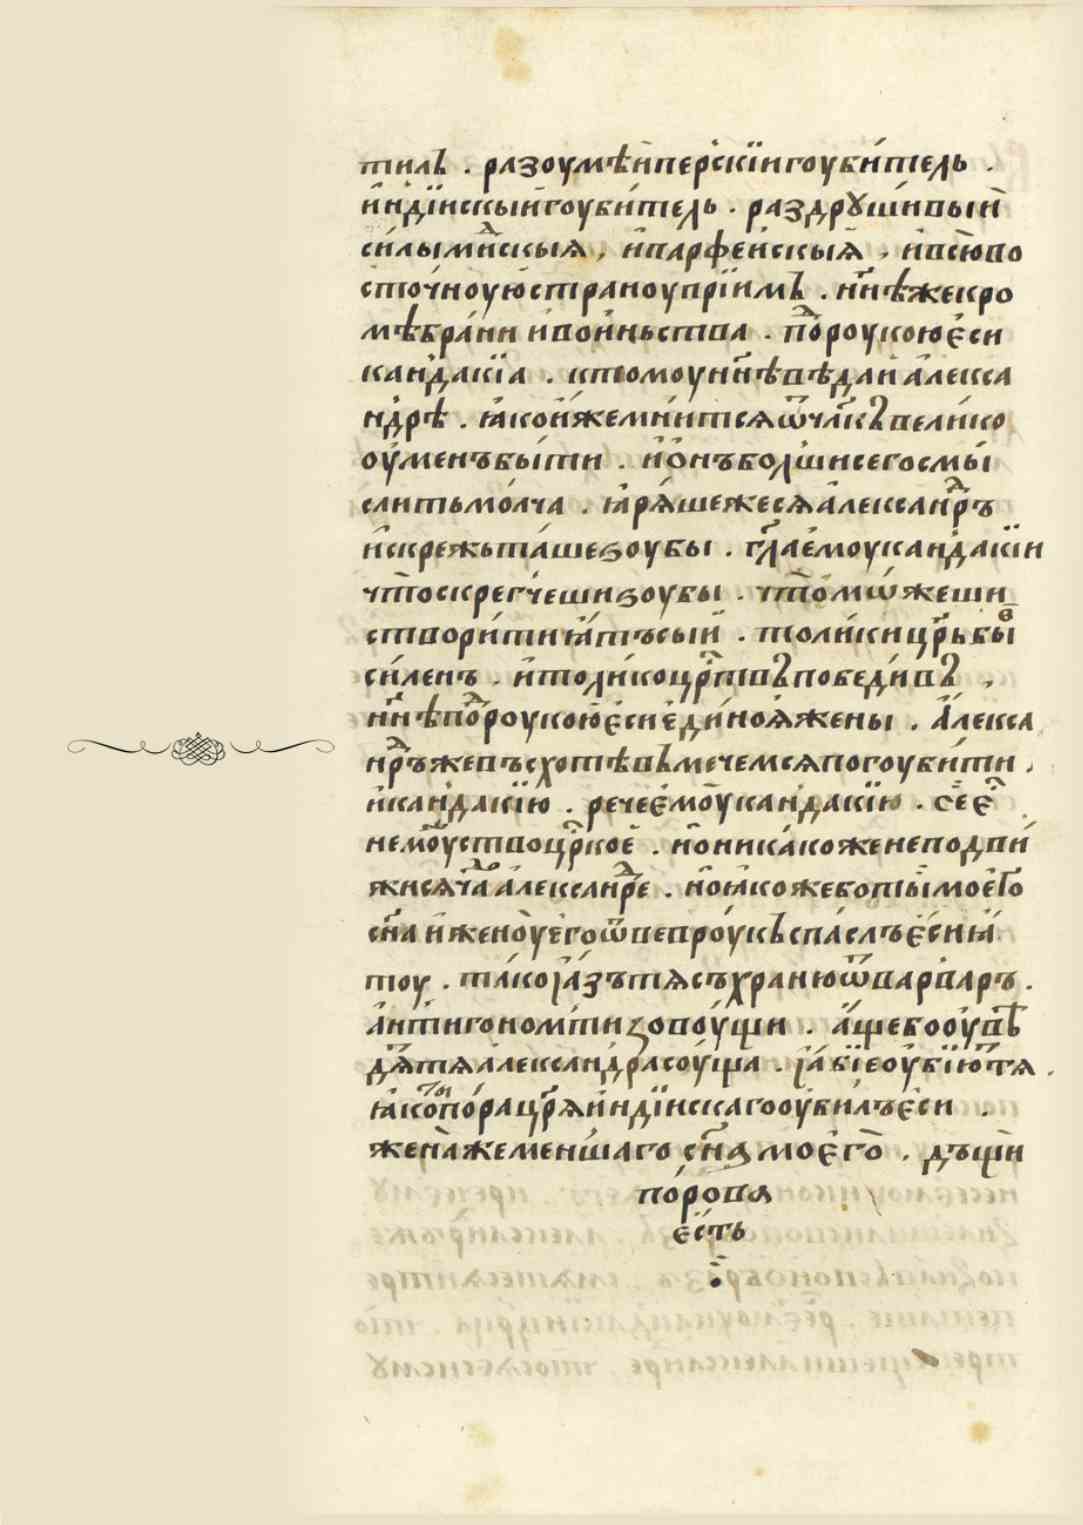 тилъ . разоумѣйперскїигоуби́тель .
и҆ндїискыйгоуби́тель . раздрꙋши́выи
си́лыми҆дскыѧ , и҆парфе́искыѧ , и҆всю̀во
сто́чноую҆странꙋпрїимъ . нн҃ѣжекро
мѣбра́ни и҆во́иньства . по́дроукою є҆си
канда́кїа . ктомоунн҃ѣвѣдаи а҆лекса
ндрѣ . ꙗ҆кои҆́жемни́тсѧѿчл҃къ вели́ко
оу҆менъбы́ти . и҆о҆нъбо́лшисегосмы́
слитьмо́лча . ꙗ҆рѧ́шежесѧа҆лександръ
и҆скрежьта́шеѕоубы . гл҃аемоукандакїи
что̀скреꙿче́шиѕоубы . что̀мѡ́жеши
створи́тиꙗ҆́тъсыи . толи́кицр҃ьбы́в
си́ленъ . и҆толи́коцр҃ствъпобѣди́въ ,
нн҃ѣпо́дроукою є҆сиє҆ди́ноѧжены . а҆́лекса
ндръжевъсхотѣвъмечемсѧпогоуби́ти ,
и҆канда́кїю . речеє҆мо̀укандакїю . сѐе҆ст
немоу́ствоцр҃кое . но̀ника́коженеподви́
жисѧча́до а҆лександре . но̀ꙗ҆кожевоты̀мое҆го
сн҃а и҆жено̀уегоѿвепро́укъспа́слъє҆́сиꙗ҆́
тоу . та́коꙗ҆́зътѧсъхранюѿва́рваръ .
а҆нтигономти зово́ущи . а҆́щебооу҆вѣ
дѧ́тъѧа҆лександрасоу́ща . ꙗ҆́бїеоу҆бїю́ттѧ .
ꙗ҆котыпо́рацр҃ѧи҆ндїискагооу҆би́лъє҆си .
жена̀жеме́ншаго сн҃а моє҆го̀ . дъщи
по́рова
є҆́сть